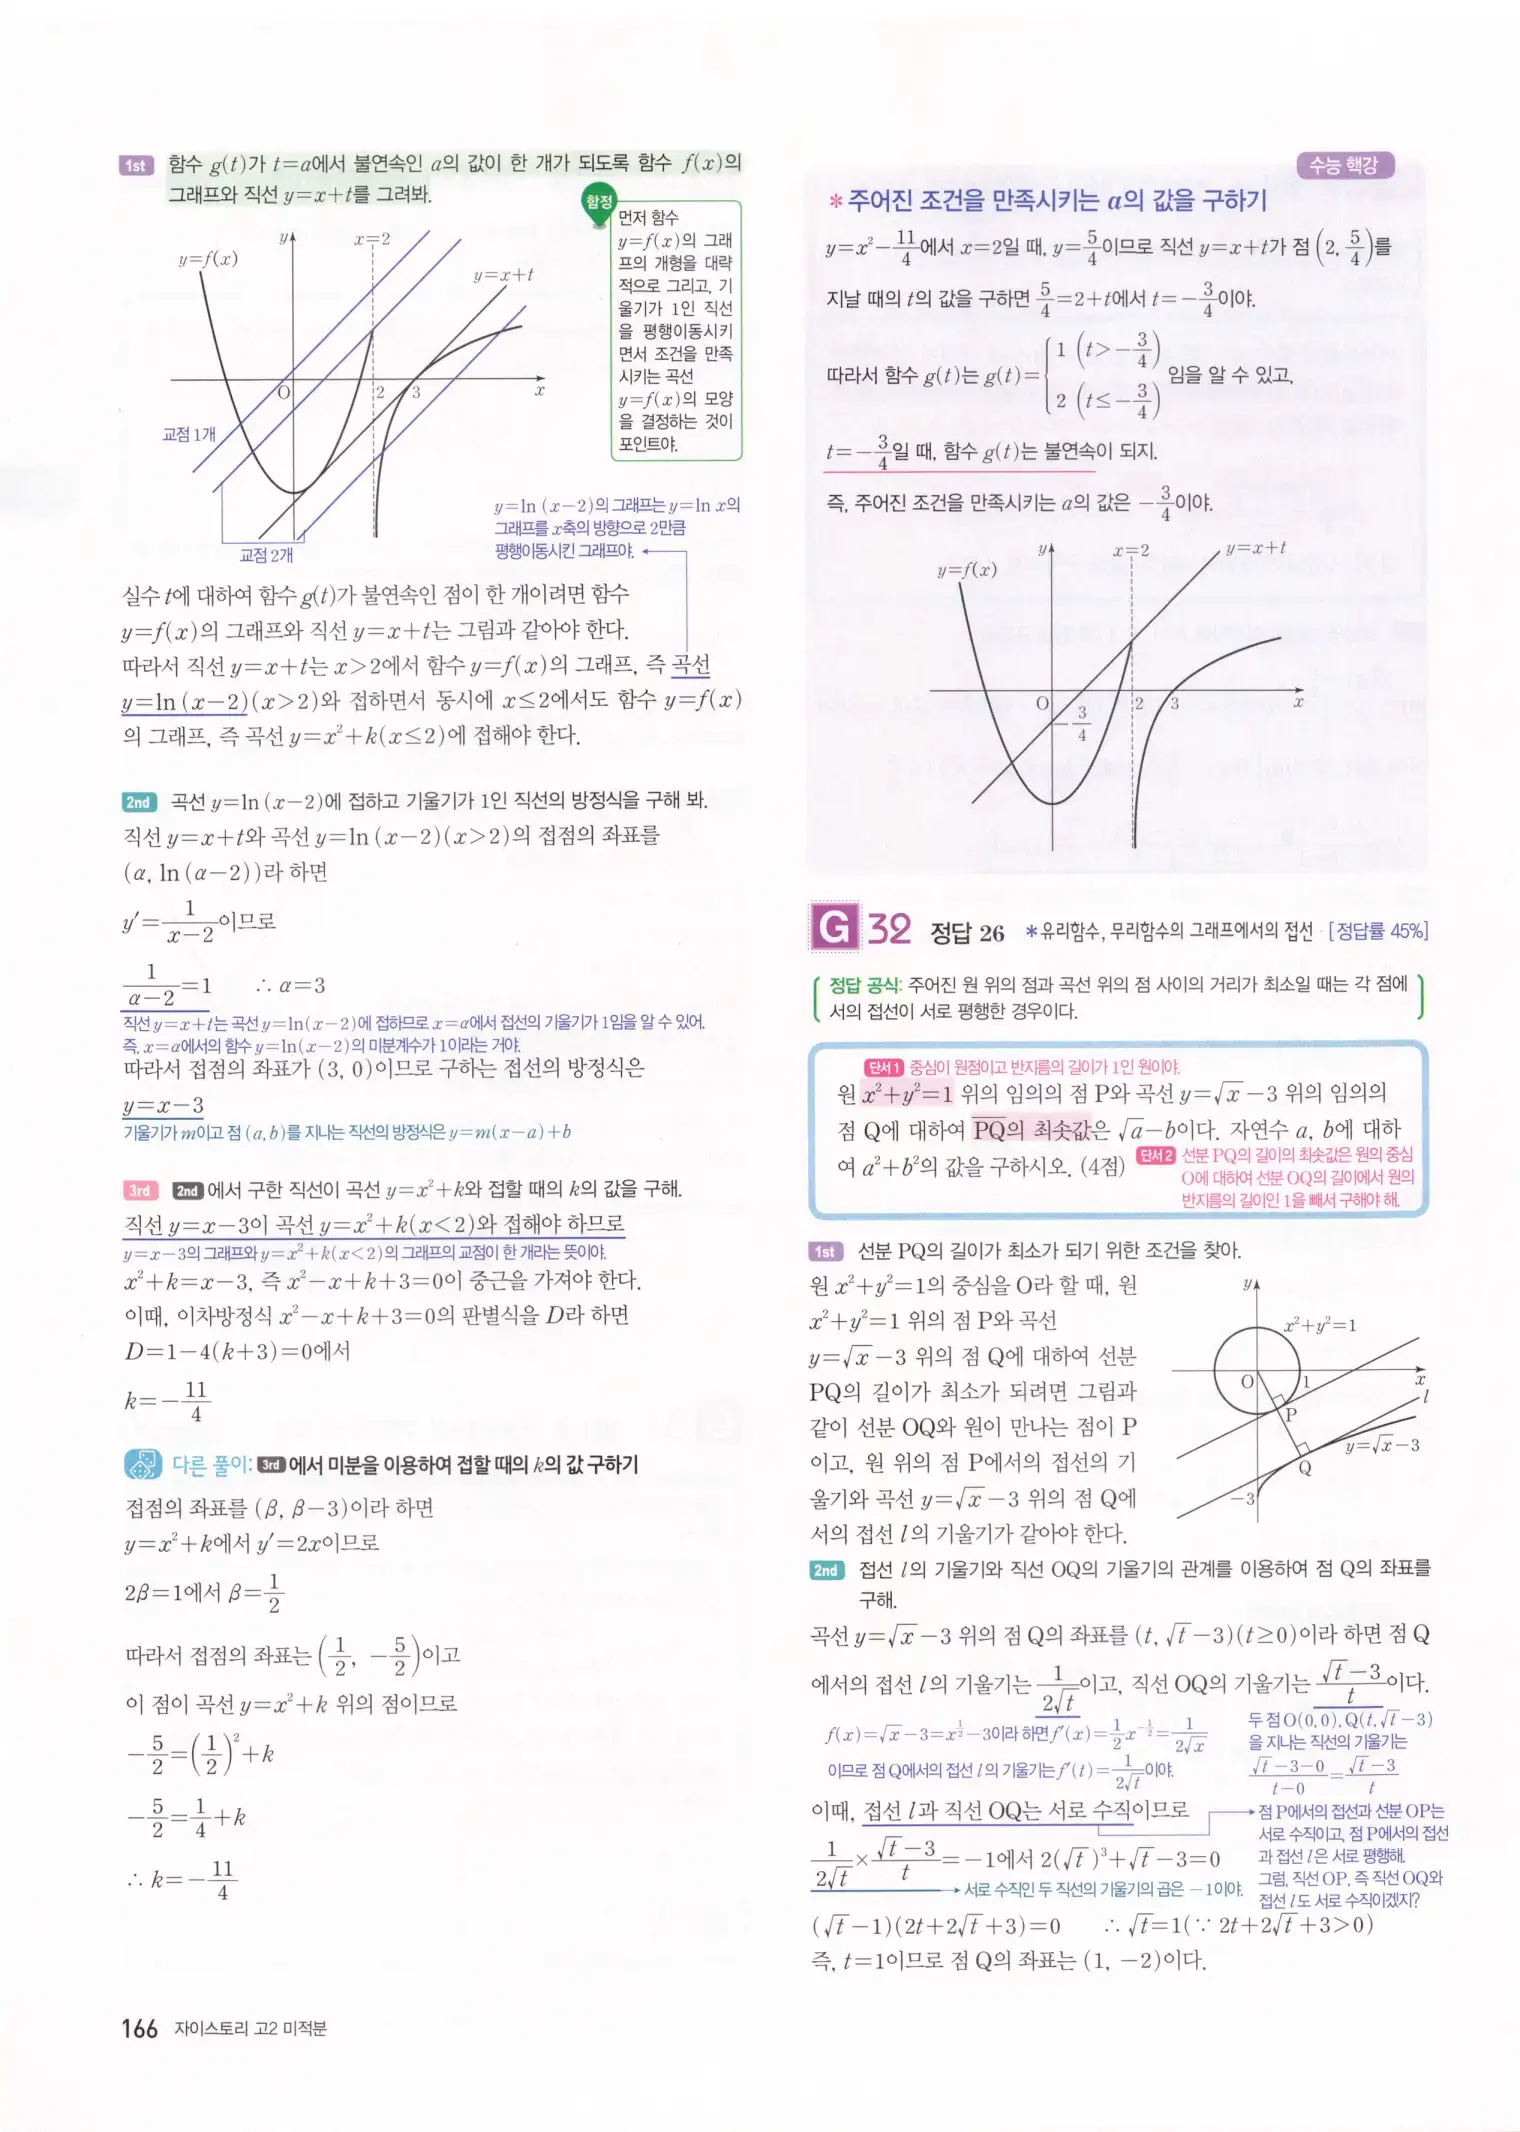 1st 함수 g(t)가 t=a에서 불연속인 a의 값이 한 개가 되도록 함수 f(x)의
그래프와 직선 y=x+t를 그려봐.
함정
먼저 함수
y=f(x)의 그래
프의 개형을 대략
적으로 그리고, 기
울기가 1인 직선
을 평행이동시키
면서 조건을 만족
시키는 곡선
y=f(x)의 모양
을 결정하는 것이
포인트야.
y
x=2
y=f(x)
y=x+t
O
2
3
x
교점 1개
교점 2개
y=ln (x-2)의 그래프는 y=ln x의
그래프를 x축의 방향으로 2만큼
평행이동시킨 그래프야.
실수 t에 대하여 함수 g(t)가 불연속인 점이 한 개이려면 함수
y=f(x)의 그래프와 직선 y=x+t는 그림과 같아야 한다.
따라서 직선 y=x+t는 x>2에서 함수 y=f(x)의 그래프, 즉 곡선
y=ln (x-2)(x>2)와 접하면서 동시에 x≤2에서도 함수 y=f(x)
의 그래프, 즉 곡선 y=x²+k(x≤2)에 접해야 한다.
2nd 곡선 y=ln (x-2)에 접하고 기울기가 1인 직선의 방정식을 구해 봐.
직선 y=x+t와 곡선 y=ln (x-2)(x>2)의 접점의 좌표를
(α, ln (α-2))라 하면
y′=1/(x-2)이므로
1/(α-2)=1 ∴ α=3
직선 y=x+t는 곡선 y=ln(x-2)에 접하므로 x=α에서 접선의 기울기가 1임을 알 수 있어.
즉, x=α에서의 함수 y=ln(x-2)의 미분계수가 1이라는 거야.
따라서 접점의 좌표가 (3, 0)이므로 구하는 접선의 방정식은
y=x-3
기울기가 m이고 점 (a, b)를 지나는 직선의 방정식은 y=m(x-a)+b
3rd 2nd 에서 구한 직선이 곡선 y=x²+k와 접할 때의 k의 값을 구해.
직선 y=x-3이 곡선 y=x²+k(x<2)와 접해야 하므로
y=x-3의 그래프와 y=x²+k(x<2)의 그래프의 교점이 한 개라는 뜻이야.
x²+k=x-3, 즉 x²-x+k+3=0이 중근을 가져야 한다.
이때, 이차방정식 x²-x+k+3=0의 판별식을 D라 하면
D=1-4(k+3)=0에서
k=-11/4
다른 풀이: 3rd 에서 미분을 이용하여 접할 때의 k의 값 구하기
접점의 좌표를 (β, β-3)이라 하면
y=x²+k에서 y′=2x이므로
2β=1에서 β=1/2
따라서 접점의 좌표는 (1/2, -5/2)이고
이 점이 곡선 y=x²+k 위의 점이므로
-5/2=(1/2)²+k
-5/2=1/4+k
∴ k=-11/4
166 자이스토리 고2 미적분
수능 핵강
*주어진 조건을 만족시키는 a의 값을 구하기
y=x²-11/4에서 x=2일 때, y=5/4이므로 직선 y=x+t가 점 (2, 5/4)를
지날 때의 t의 값을 구하면 5/4=2+t에서 t=-3/4이야.
따라서 함수 g(t)는 g(t)={1 (t>-3/4) 임을 알 수 있고,
2 (t≤-3/4)
t=-3/4일 때, 함수 g(t)는 불연속이 되지.
즉, 주어진 조건을 만족시키는 a의 값은 -3/4이야.
y
x=2
y=x+t
y=f(x)
O
-3/4
2
3
x
G 32 정답 26 *유리함수, 무리함수의 그래프에서의 접선 [정답률 45%]
정답 공식: 주어진 원 위의 점과 곡선 위의 점 사이의 거리가 최소일 때는 각 점에
서의 접선이 서로 평행한 경우이다.
단서1 중심이 원점이고 반지름의 길이가 1인 원이야.
원 x²+y²=1 위의 임의의 점 P와 곡선 y=√x-3 위의 임의의
점 Q에 대하여 PQ의 최솟값은 √a-b이다. 자연수 a, b에 대하
여 a²+b²의 값을 구하시오. (4점)
단서2 선분 PQ의 길이의 최솟값은 원의 중심
O에 대하여 선분 OQ의 길이에서 원의
반지름의 길이인 1을 빼서 구해야 해.
1st 선분 PQ의 길이가 최소가 되기 위한 조건을 찾아.
원 x²+y²=1의 중심을 O라 할 때, 원
x²+y²=1 위의 점 P와 곡선
y=√x-3 위의 점 Q에 대하여 선분
PQ의 길이가 최소가 되려면 그림과
같이 선분 OQ와 원이 만나는 점이 P
이고, 원 위의 점 P에서의 접선의 기
울기와 곡선 y=√x-3 위의 점 Q에
서의 접선 l의 기울기가 같아야 한다.
y
x²+y²=1
O
1
x
l
P
y=√x-3
Q
-3
2nd 접선 l의 기울기와 직선 OQ의 기울기의 관계를 이용하여 점 Q의 좌표를
구해.
곡선 y=√x-3 위의 점 Q의 좌표를 (t, √t-3)(t≥0)이라 하면 점 Q
에서의 접선 l의 기울기는 1/(2√t)이고, 직선 OQ의 기울기는 (√t-3)/t이다.
f(x)=√x-3=x^(1/2)-3이라 하면 f′(x)=1/2 x^(-1/2)=1/(2√x)
이므로 점 Q에서의 접선 l의 기울기는 f′(t)=1/(2√t)이야.
두 점 O(0, 0), Q(t, √t-3)
을 지나는 직선의 기울기는
(√t-3-0)/(t-0)=(√t-3)/t
이때, 접선 l과 직선 OQ는 서로 수직이므로
1/(2√t)×(√t-3)/t=-1에서 2(√t)³+√t-3=0
서로 수직인 두 직선의 기울기의 곱은 -1이야.
점 P에서의 접선과 선분 OP는
서로 수직이고, 점 P에서의 접선
과 접선 l은 서로 평행해.
그럼, 직선 OP, 즉 직선 OQ와
접선 l도 서로 수직이겠지?
(√t-1)(2t+2√t+3)=0 ∴ √t=1(∵ 2t+2√t+3>0)
즉, t=1이므로 점 Q의 좌표는 (1, -2)이다.